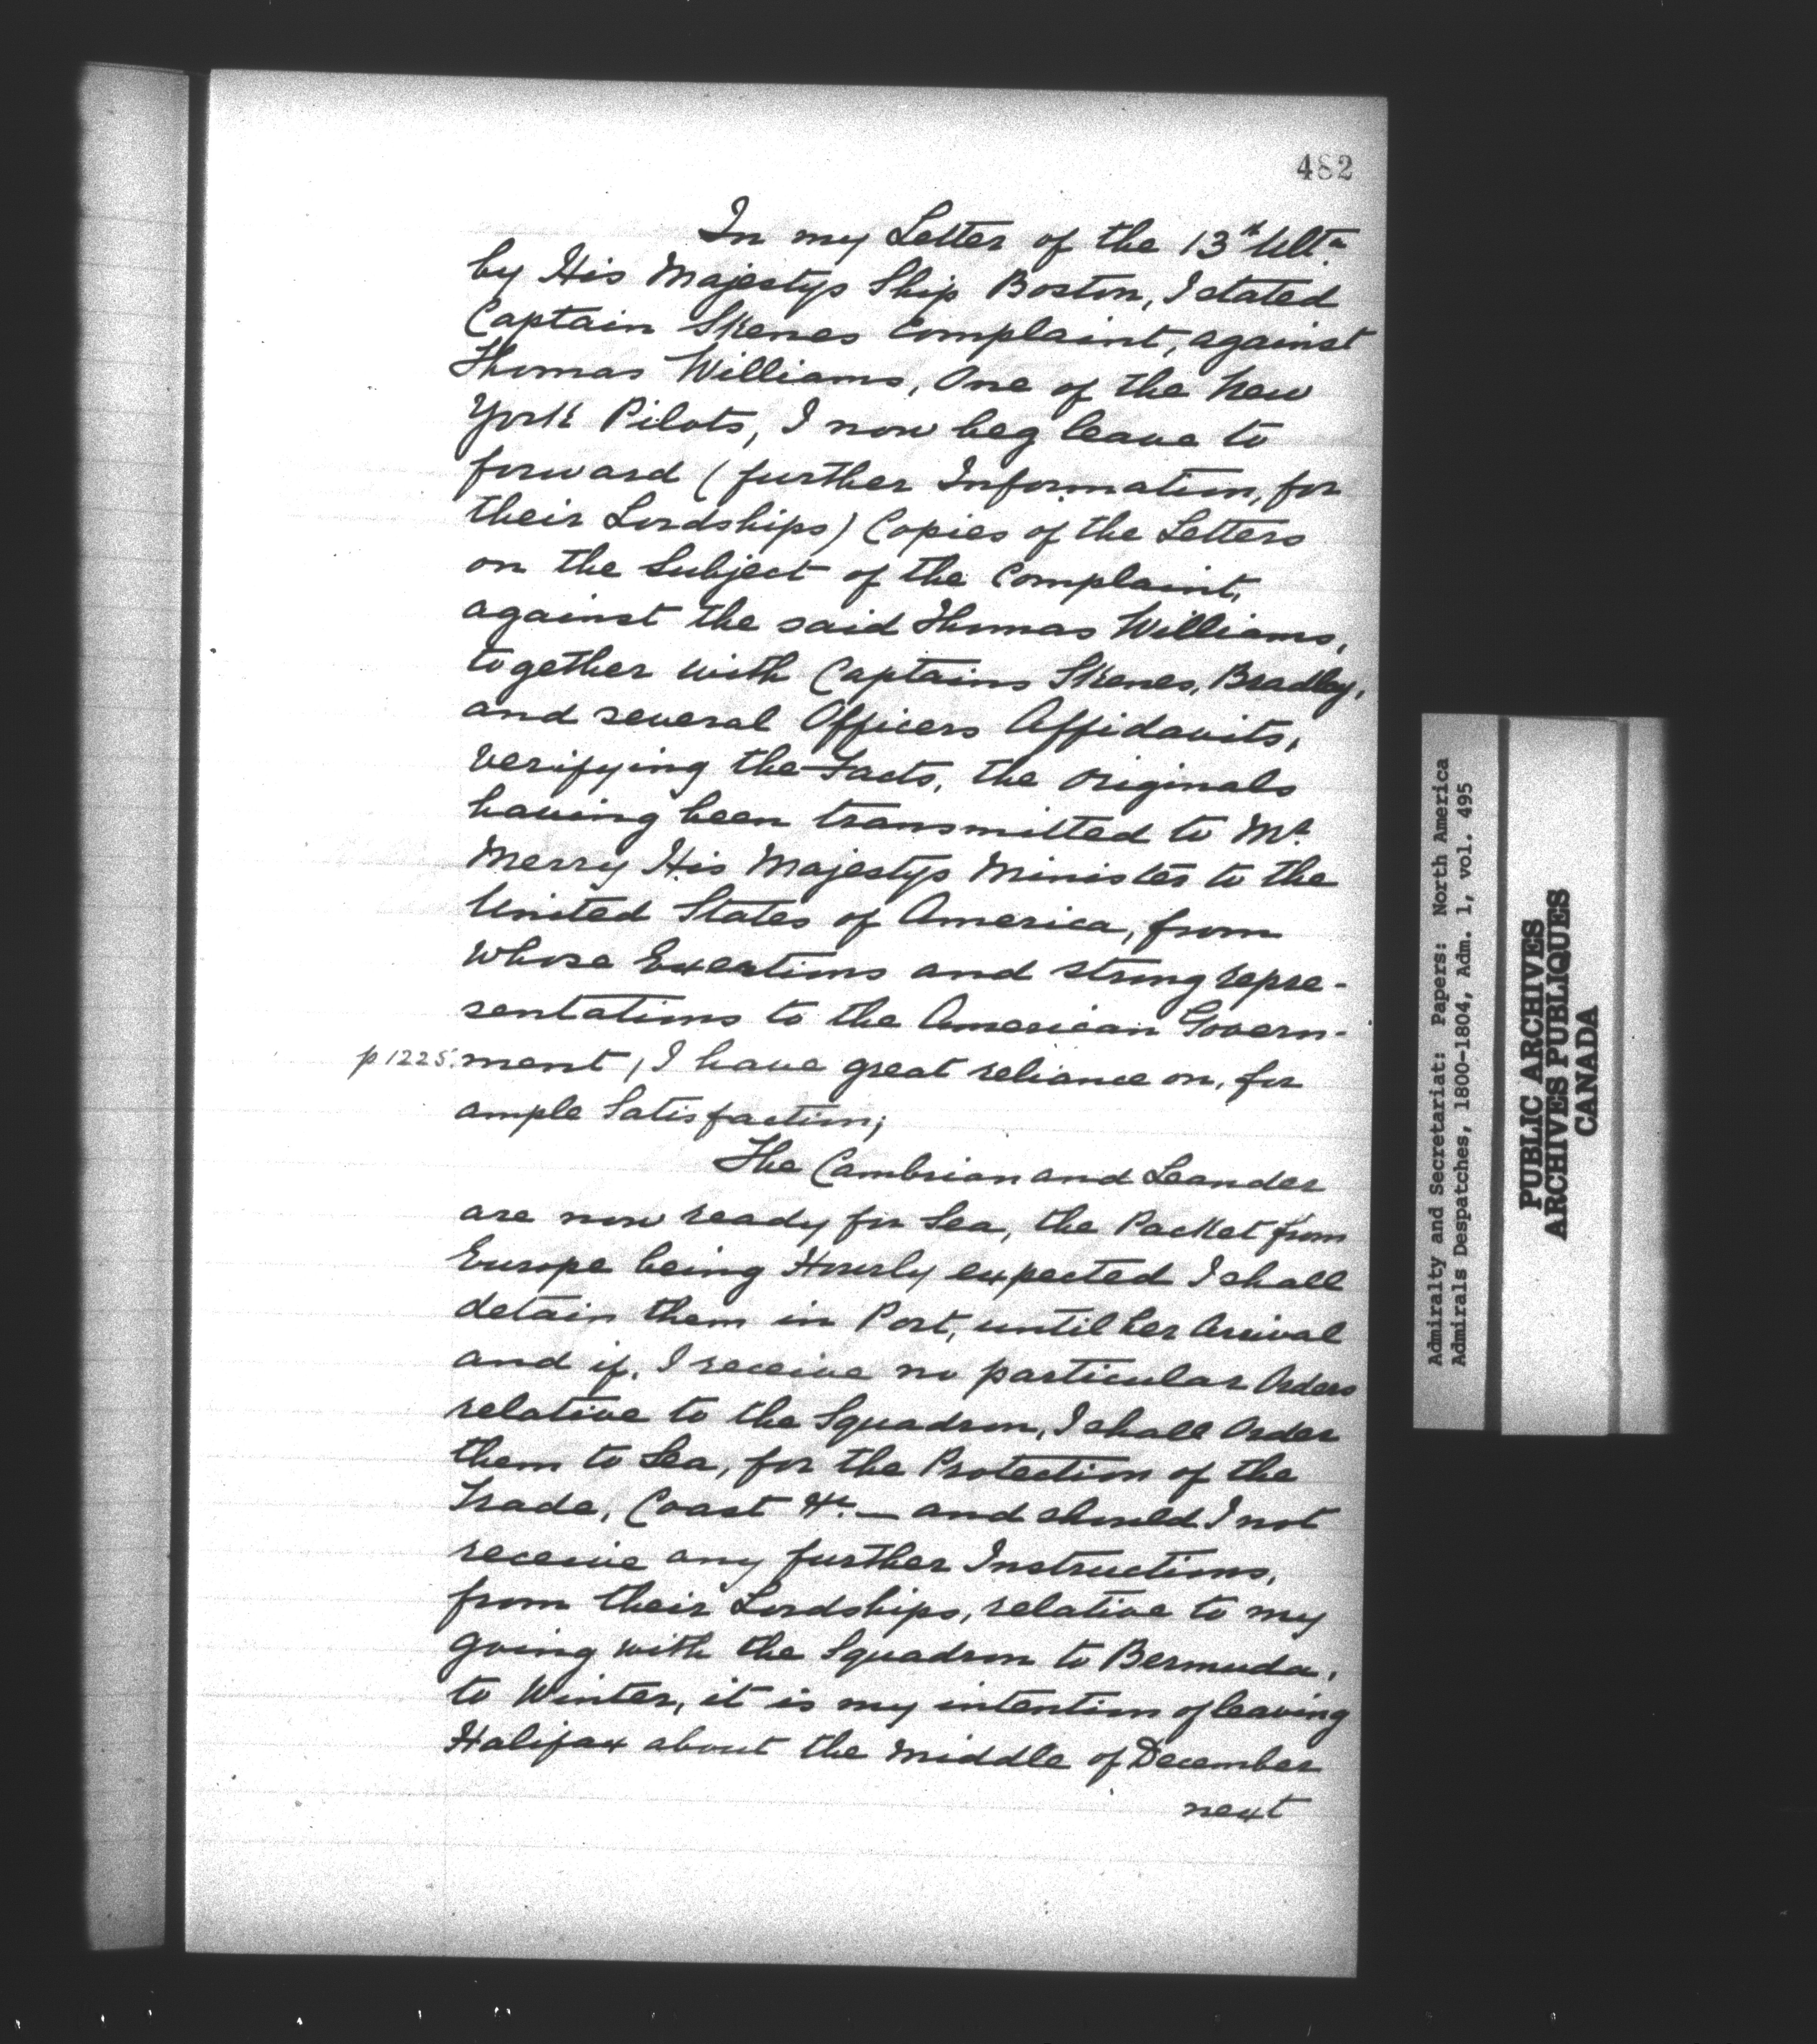 482
In my Letter of the 13th Ulto.
by His Majestys Ship Boston, I stated
Captain Skenes Complaint, against
Thomas Williams, One of the New
York Pilots, I now beg leave to
forward (further Information, for
their Lordships) Copies of the Letters
on the Subject of the Complaint,
against the said Thomas Williams,
together with Captains Skenes, Bradley,
and several Officers Affidavits,
verifying the Facts, the Originals
having been transmitted to Mr.
Merry His Majestys Minister to the
United States of America, from
whose Exertions and strong repre-
sentations to the American Govern-
p 1225. ment, I have great reliance on, for
ample Satisfaction;
The Cambrian and Leander
are now ready for Sea, the Packet from
Europe being Hourly expected I shall
detain them in Port, until her Arrival
and if, I receive no particular Orders
relative to the Squadron, I shall Order
them to Sea, for the Protection of the
Trade, Coast &c. — and should I not
receive any further Instructions,
from their Lordships, relative to my
going with the Squadron to Bermuda,
to Winter, it is my intention of leaving
Halifax about the Middle of December
next
Admiralty and Secretariat: Papers: North America
Admirals Despatches, 1800-1804, Adm. 1, vol. 495
PUBLIC ARCHIVES
ARCHIVES PUBLIQUES
CANADA